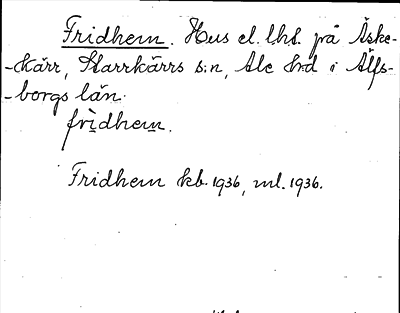 Fridhem. Hus el. lht. på Äske-
-kärr, Starrkärrs s:n, Ale hd i Älfs-
-borgs län.
fri̇̀dhem.
Fridhem kb. 1936, ml. 1936.